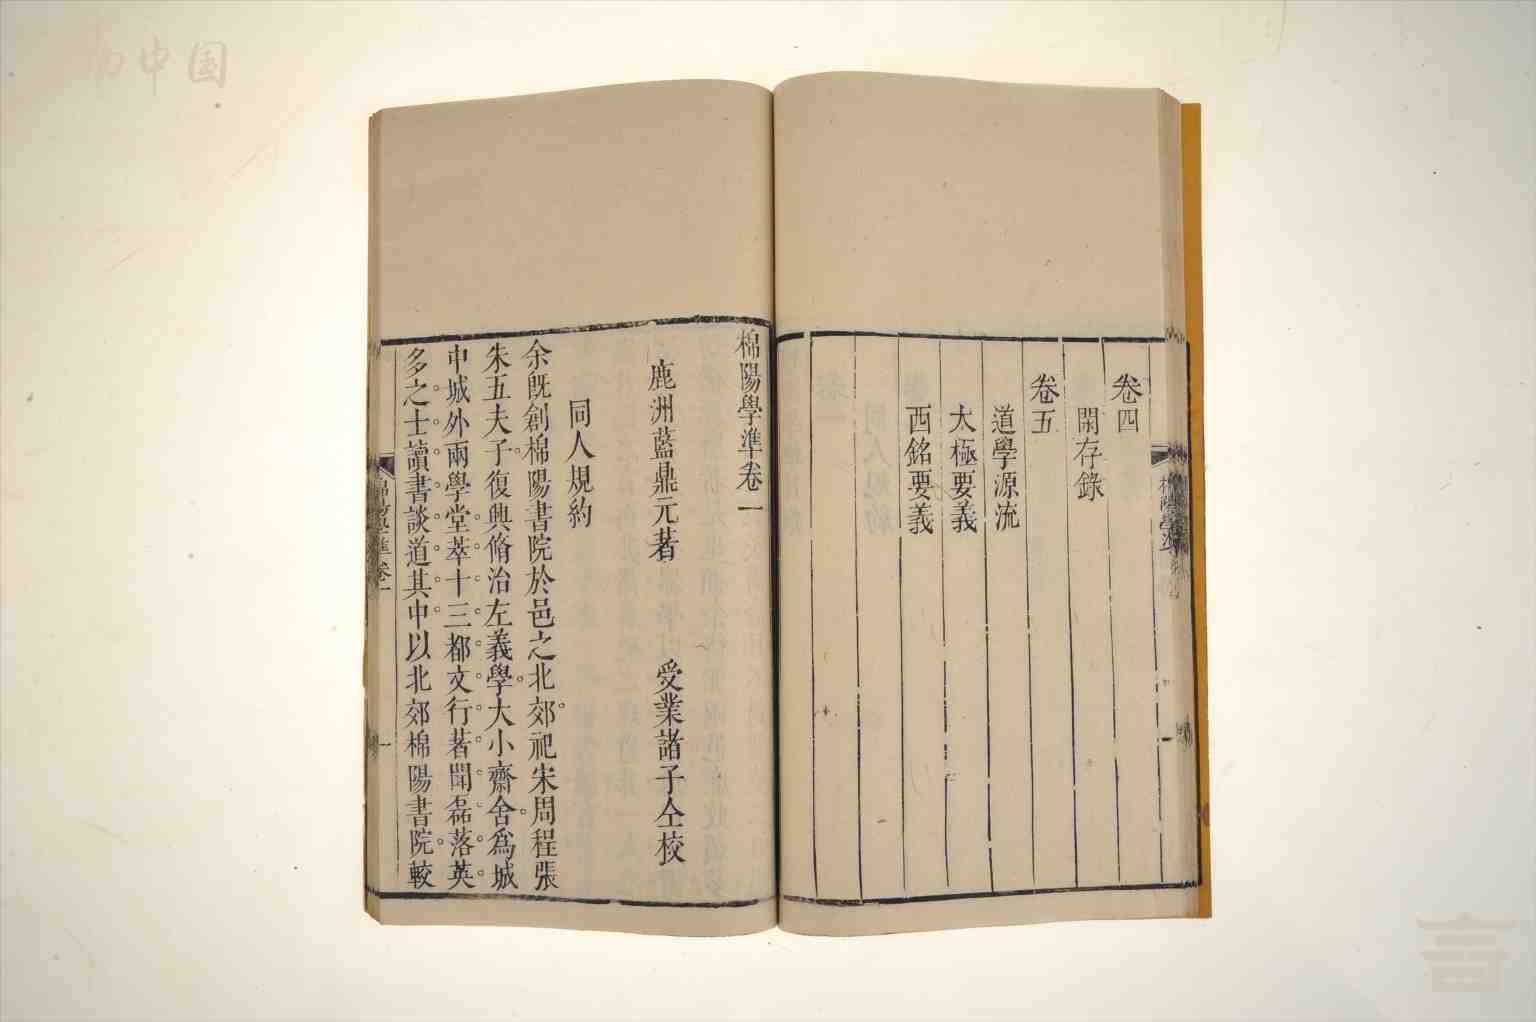 卷四
閑存錄
卷五
道學源流
太極要義
西銘要義
棉陽學準卷一
鹿洲藍鼎元著 受業諸子仝校
同人規約
余旣創棉陽書院於邑之北郊。祀宋周程張
朱五夫子。復興脩治左義學。大小齋舍。爲城
中城外兩學堂萃十三都文行著聞磊落英
多之士讀書談道其中以北郊棉陽書院。較
棉陽學準卷一
一
中国